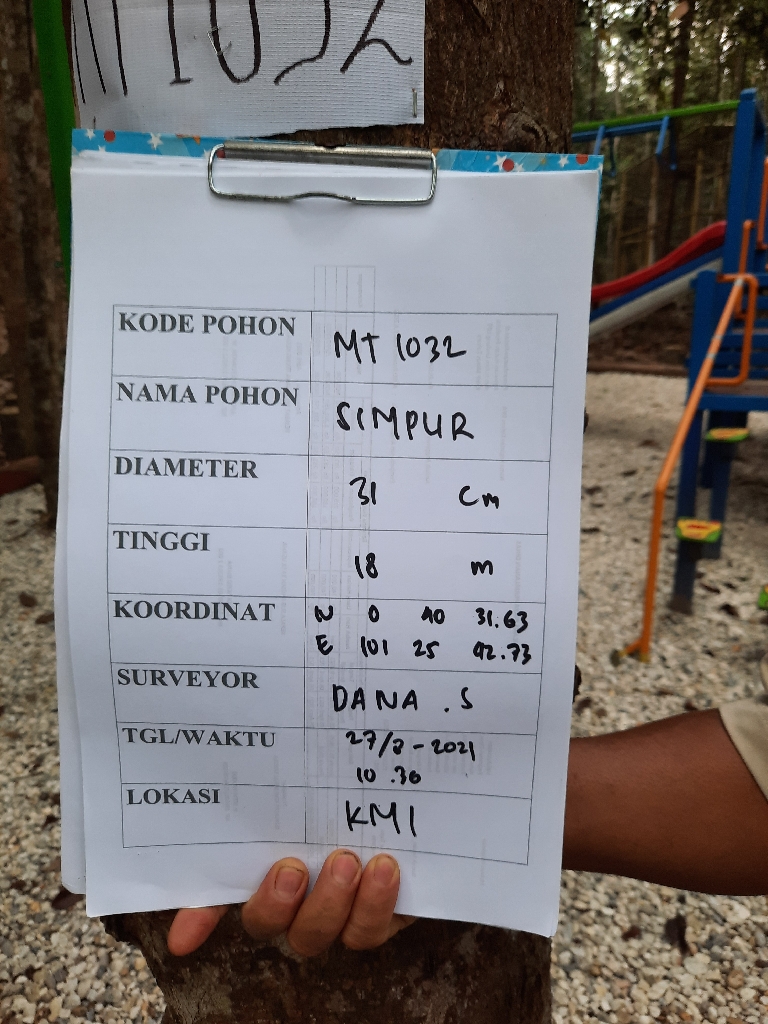 MT 1032
KODE POHON MT 1032
NAMA POHON SIMPUR
DIAMETER 31 Cm
TINGGI 18 m
KOORDINAT N 0 40 31.63
E 101 25 42.73
SURVEYOR DANA . S
TGL/WAKTU 27/8-2021
10.30
LOKASI KMI